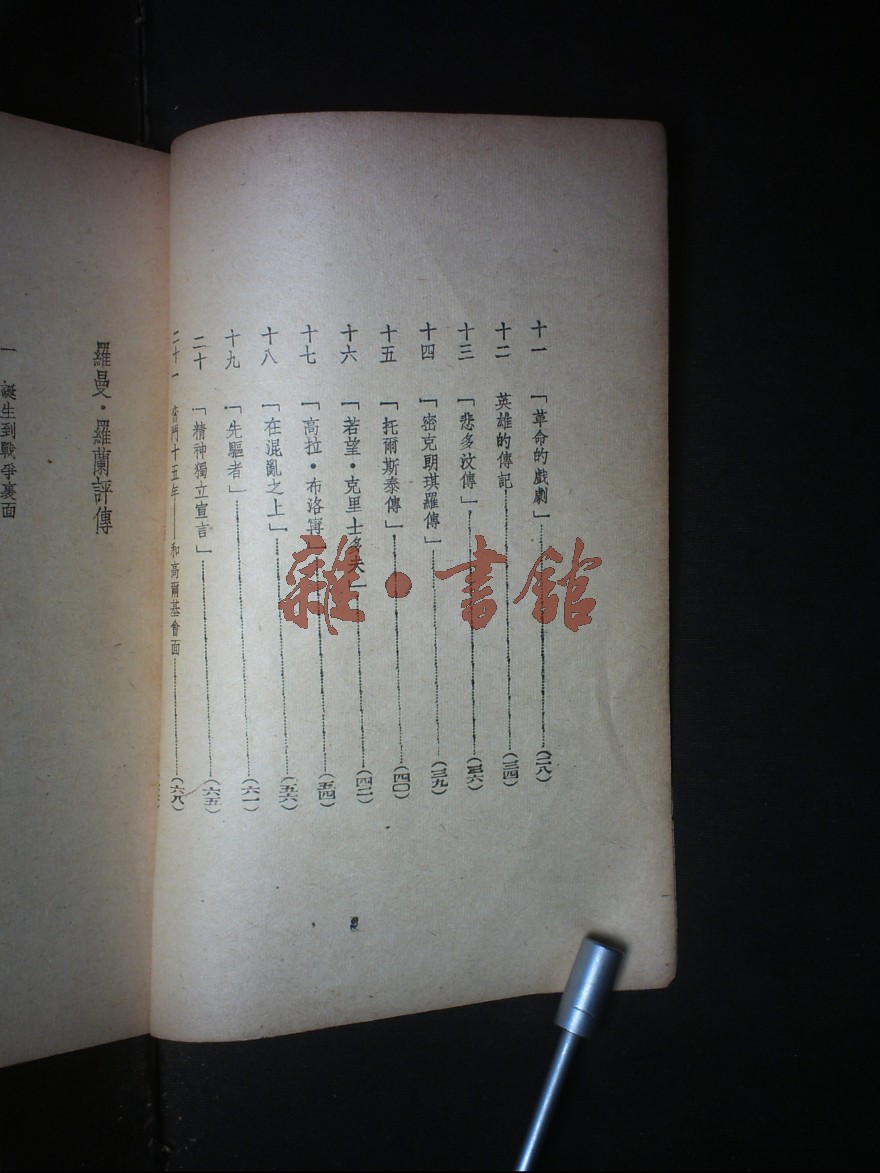 十一 「革命的戲劇」 (二八)
十二 英雄的傳記 (三四)
十三 「悲多汶傳」 (三六)
十四 「密克朗琪羅傳」 (三九)
十五 「托爾斯泰傳」 (四〇)
十六 「若望·克里士多夫」 (四二)
十七 「高拉·布洛寗」 (五四)
十八 「在混亂之上」 (五六)
十九 「先驅者」 (六一)
二十 「精神獨立宣言」 (六五)
二十一 奮鬥十五年——和高爾基會面 (六八)
羅曼·羅蘭評傳
一 誕生到戰爭裏面
雜·書館